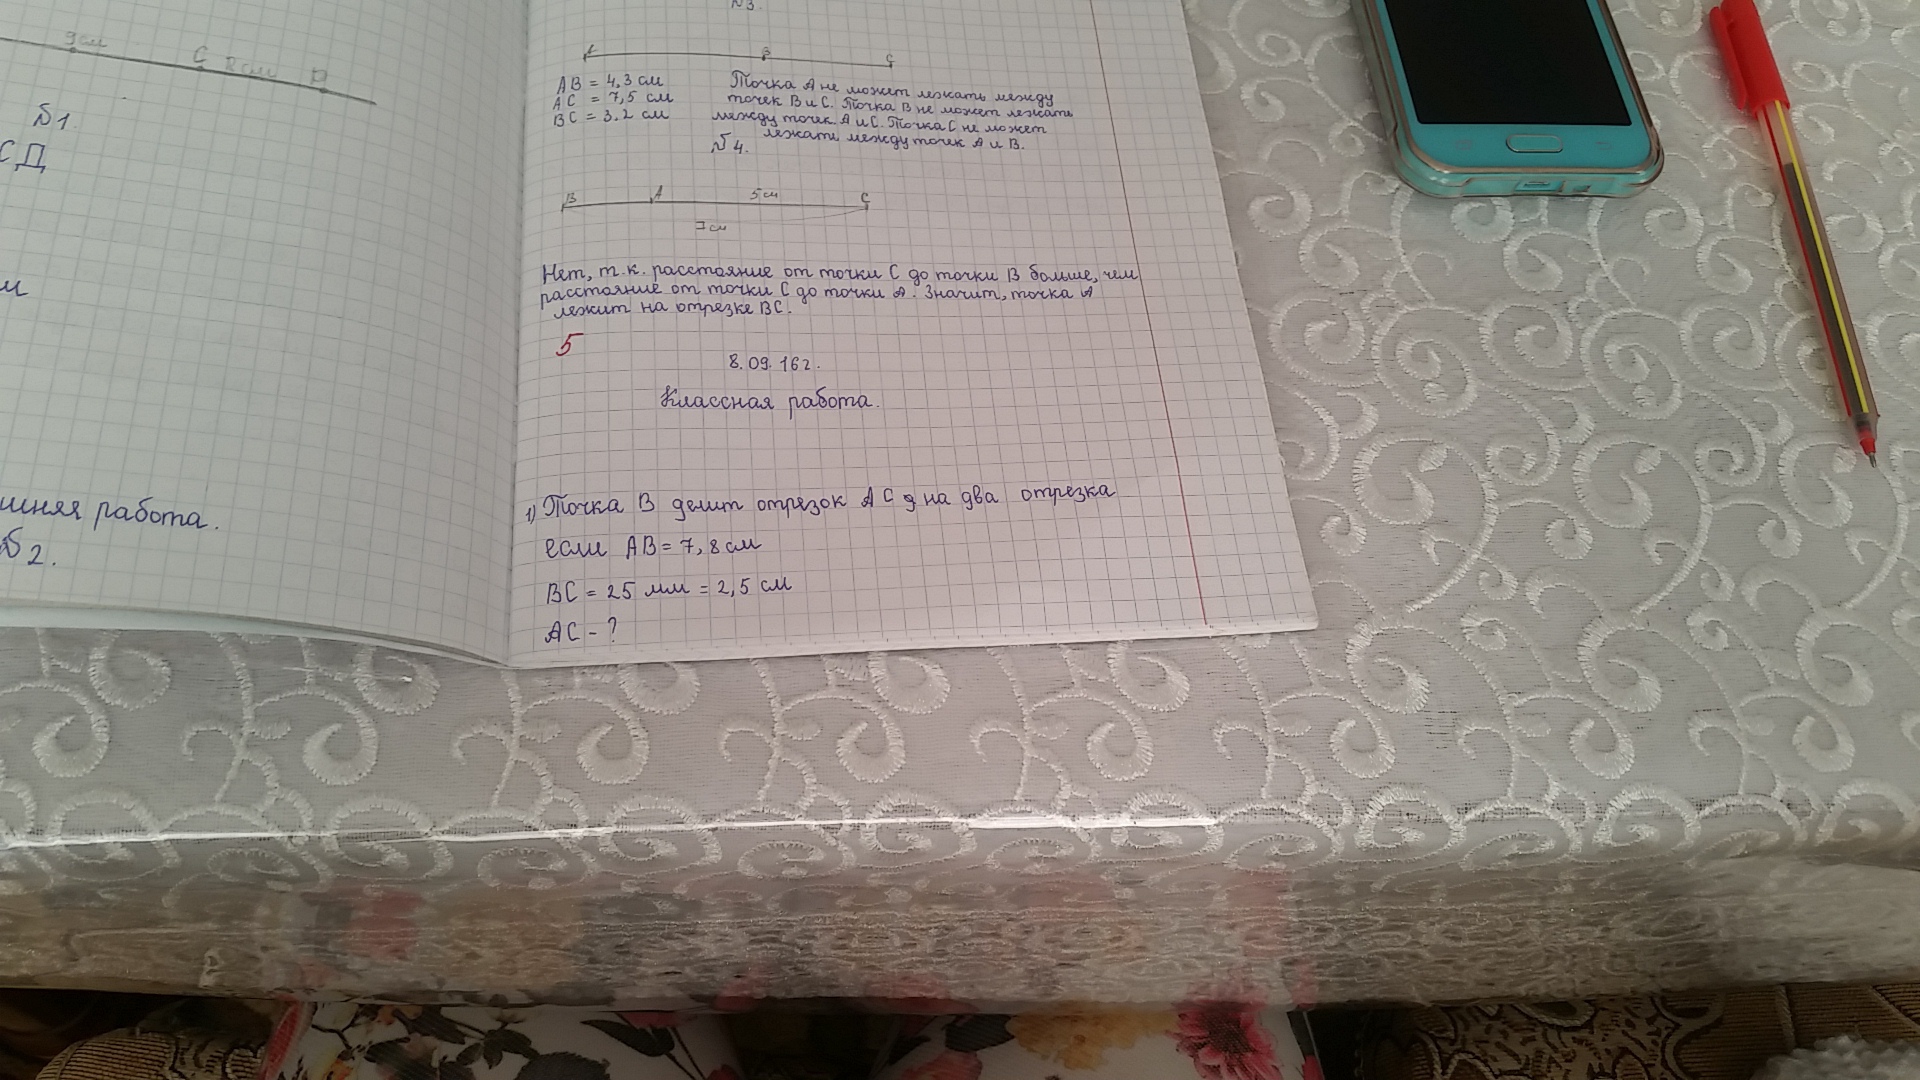 9см
С 2см D
№1.
СД
м
шняя работа.
№2.
№3.
A B C
AB = 4,3 см
AC = 7,5 см
BC = 3,2 см
Точка A не может лежать между
точек B и C. Точка B не может лежать
между точек A и C. Точка C не может
лежать между точек A и B.
№4.
B A 5см C
7см
Нет, т.к. расстояние от точки C до точки B больше, чем
расстояние от точки C до точки A. Значит, точка A
лежит на отрезке BC.
5
8.09.16г.
Классная работа.
1) Точка B делит отрезок AC д на два отрезка
если AB = 7,8 см
BC = 25 мм = 2,5 см
AC - ?